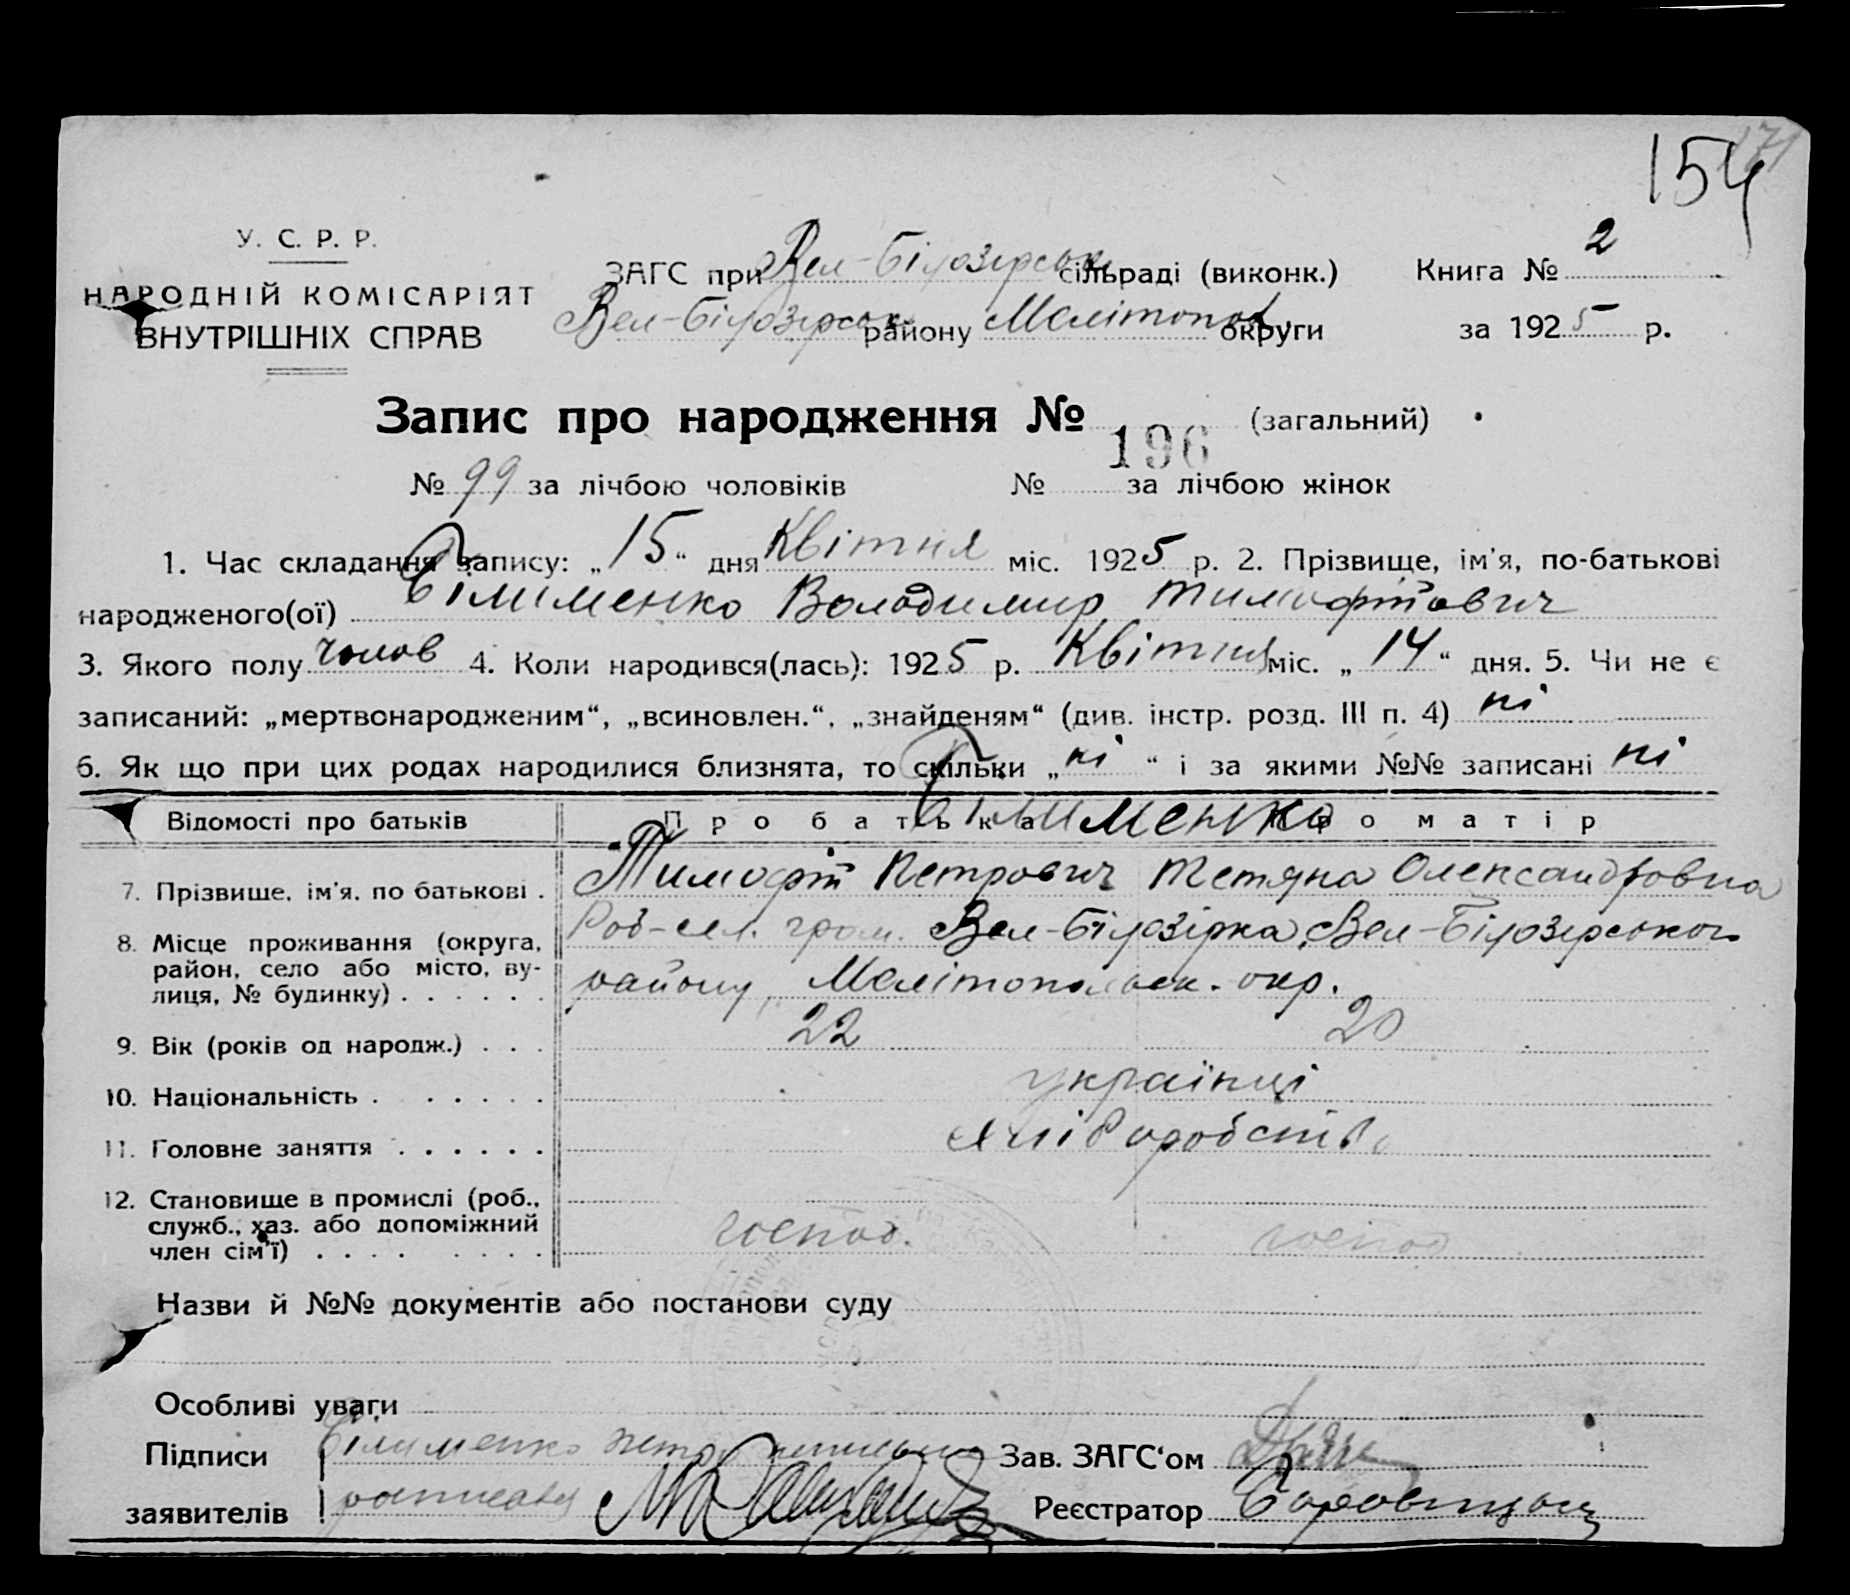 154
171
У. С. Р. Р.
НАРОДНІЙ КОМІСАРІЯТ
ВНУТРІШНІХ СПРАВ
ЗАГС при Вел-Білозерськ сільраді (виконк.)
Вел-Білозерськ району Мелітопол округи
Книга № 2
за 1925 р.
Запис про народження № 196 (загальний)
№ 99 за лічбою чоловіків № за лічбою жінок
1. Час складання запису: „15“ дня Квітня міс. 1925 р. 2. Прізвище, ім'я, по-батькові
народженого(ої) Білименко Володимир Тимофійович
3. Якого полу чолов 4. Коли народився(лась): 1925 р. Квітня міс. „14“ дня. 5. Чи не є
записаний: „мертвонародженим“, „всиновлен.“, „знайденям“ (див. інстр. розд. III п. 4) ні
6. Як що при цих родах народилися близнята, то скільки „ні“ і за якими №№ записані ні
Відомості про батьків Про батька Про матір
Білименко
7. Прізвище, ім'я, по батькові . Тимофій Петрович Тетяна Олександровна
8. Місце проживання (округа, район, село або місто, ву-лиця, № будинку) . . . . . . Роб-сел. гром. Вел-Білозірка, Вел-Білозерського
району, Мелітопольськ. окр.
9. Вік (років од народж.) . . . 22 20
10. Національність . . . . . . українці
11. Головне заняття . . . . . . хліборобство
12. Становище в промислі (роб., служб., хаз. або допоміжний член сім'ї) . . . . . . . . . господ. господ
Назви й №№ документів або постанови суду
Особливі уваги
Підписи Білименко
заявителів
Зав. ЗАГС‘ом
Реєстратор